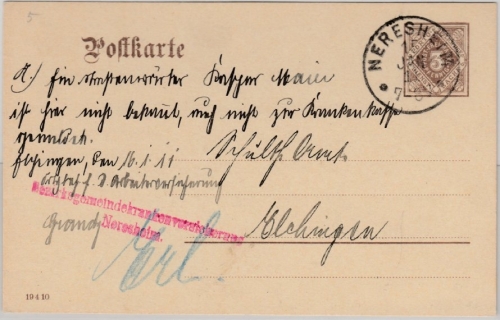 5
Postkarte
NERESHEIM
3
A.) Ein Straßenwärter Kasper Maier
ist hier nicht bekannt, auch nicht zur Krankenkasse
gemeldet.
den 16.1.11
Schulth. Amt
Ortsbeh. f. d. Arbeiterversicherung
Bezirksgemeindekrankenversicherung
Neresheim.
Elchingen
Erl.
19 4 10